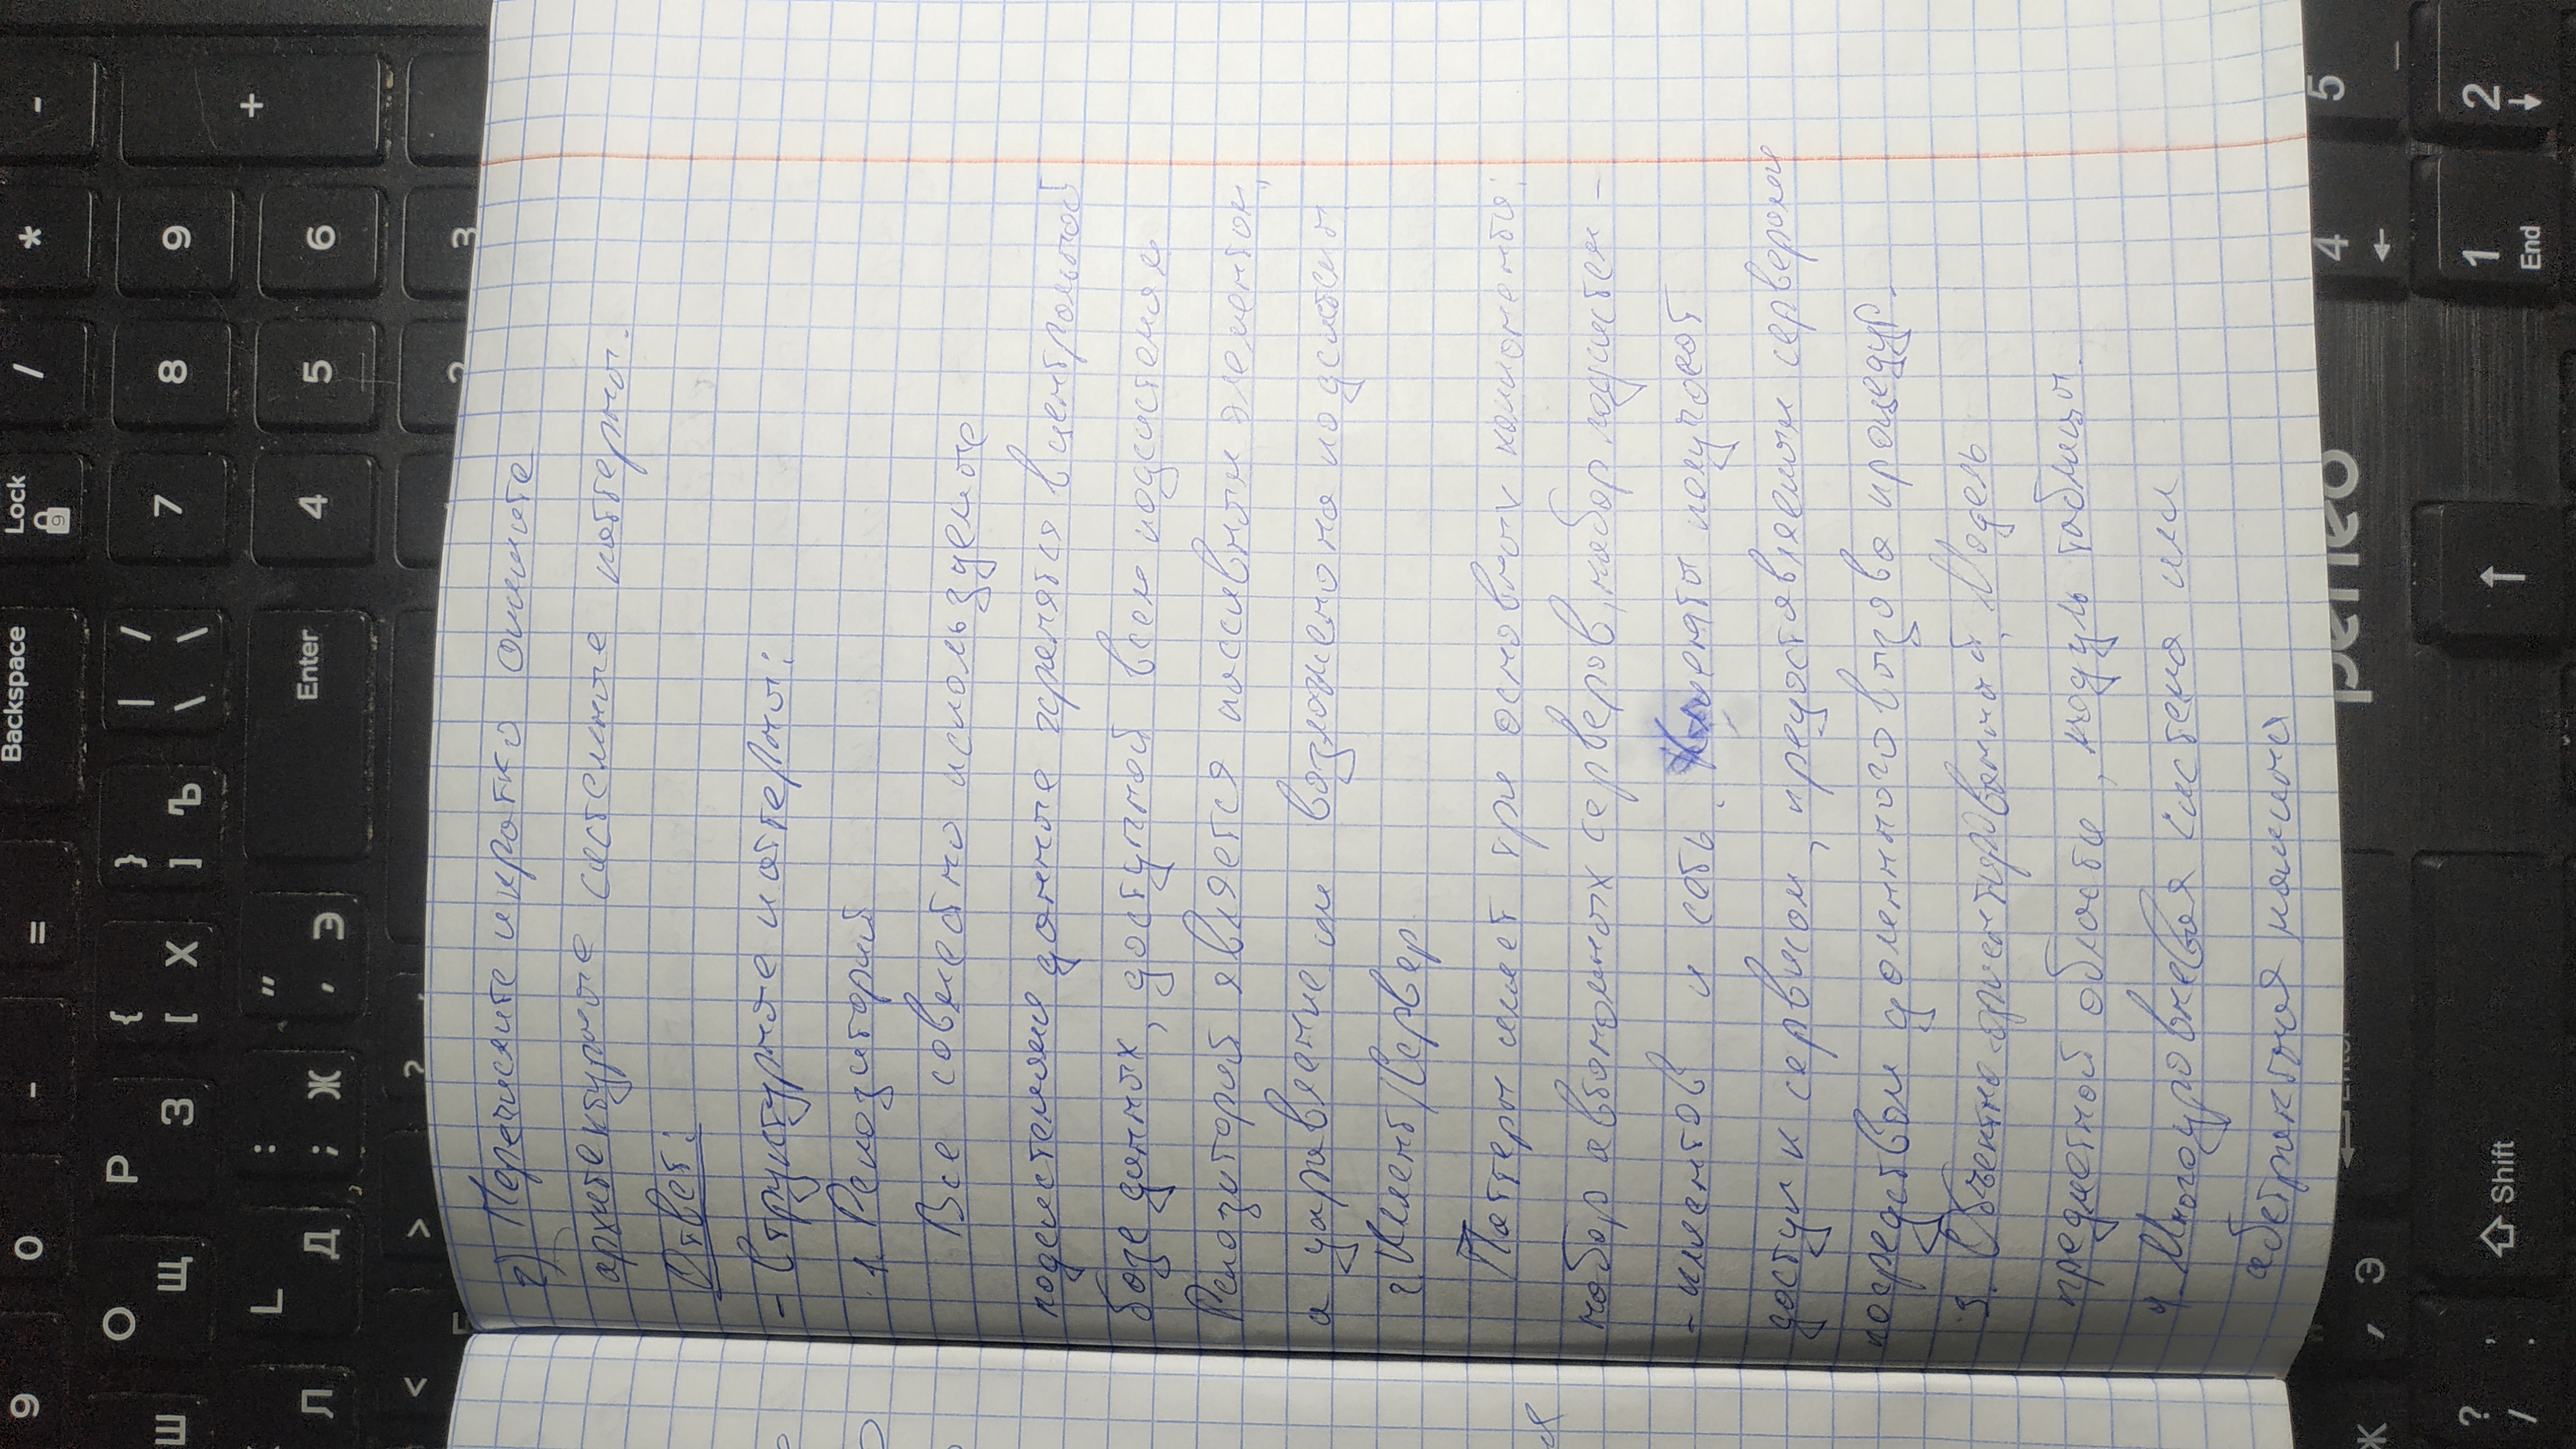 9 0 - = Backspace Lock / * -
9
О Р { } | /
Ш Щ З [ Х ] Ъ \ \ 7 8 9
+
L : "
Л Д ; Ж ' Э Enter 4 5 6
< > ?
2 3
2) Перечислите и кратко опишите
архитектурные системные паттерны.
Ответ:
- Структурные паттерны:
1. Репозиторий
Все совместно используемые
подсистемами данные хранятся в центральной
базе данных, доступной всем подсистемам
Репозиторий является пассивным элементом,
а управление им возложено на подсистемы
2. Клиент/Сервер
Паттерн имеет три основных компонента:
набор автономных серверов, набор подсистем -
- клиентов и сеть. Клиенты получают
доступ к сервисам, предоставляемым серверами
посредством удаленного вызова процедур.
3. Объектно-ориентированный, Модель
предметной области, модуль таблицы.
4. Многоуровневая система или
абстрактная машина
я
Enter
peneo
4 5
Ж , Э ← _
? , Shift ↑ 1 2
/ . End ↓